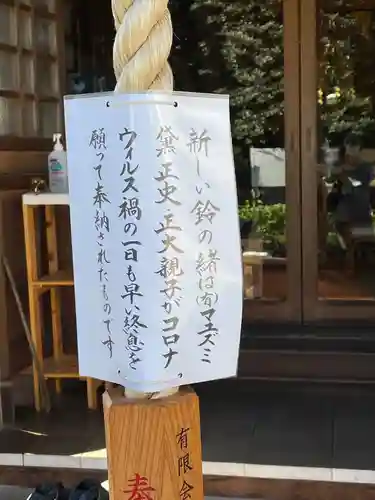 新しい鈴の緒は㈲マエスミ
黛正史 正大親子がコロナ
ウィルス禍の一日も早い終息を
願って奉納されたものです
奉
有限会